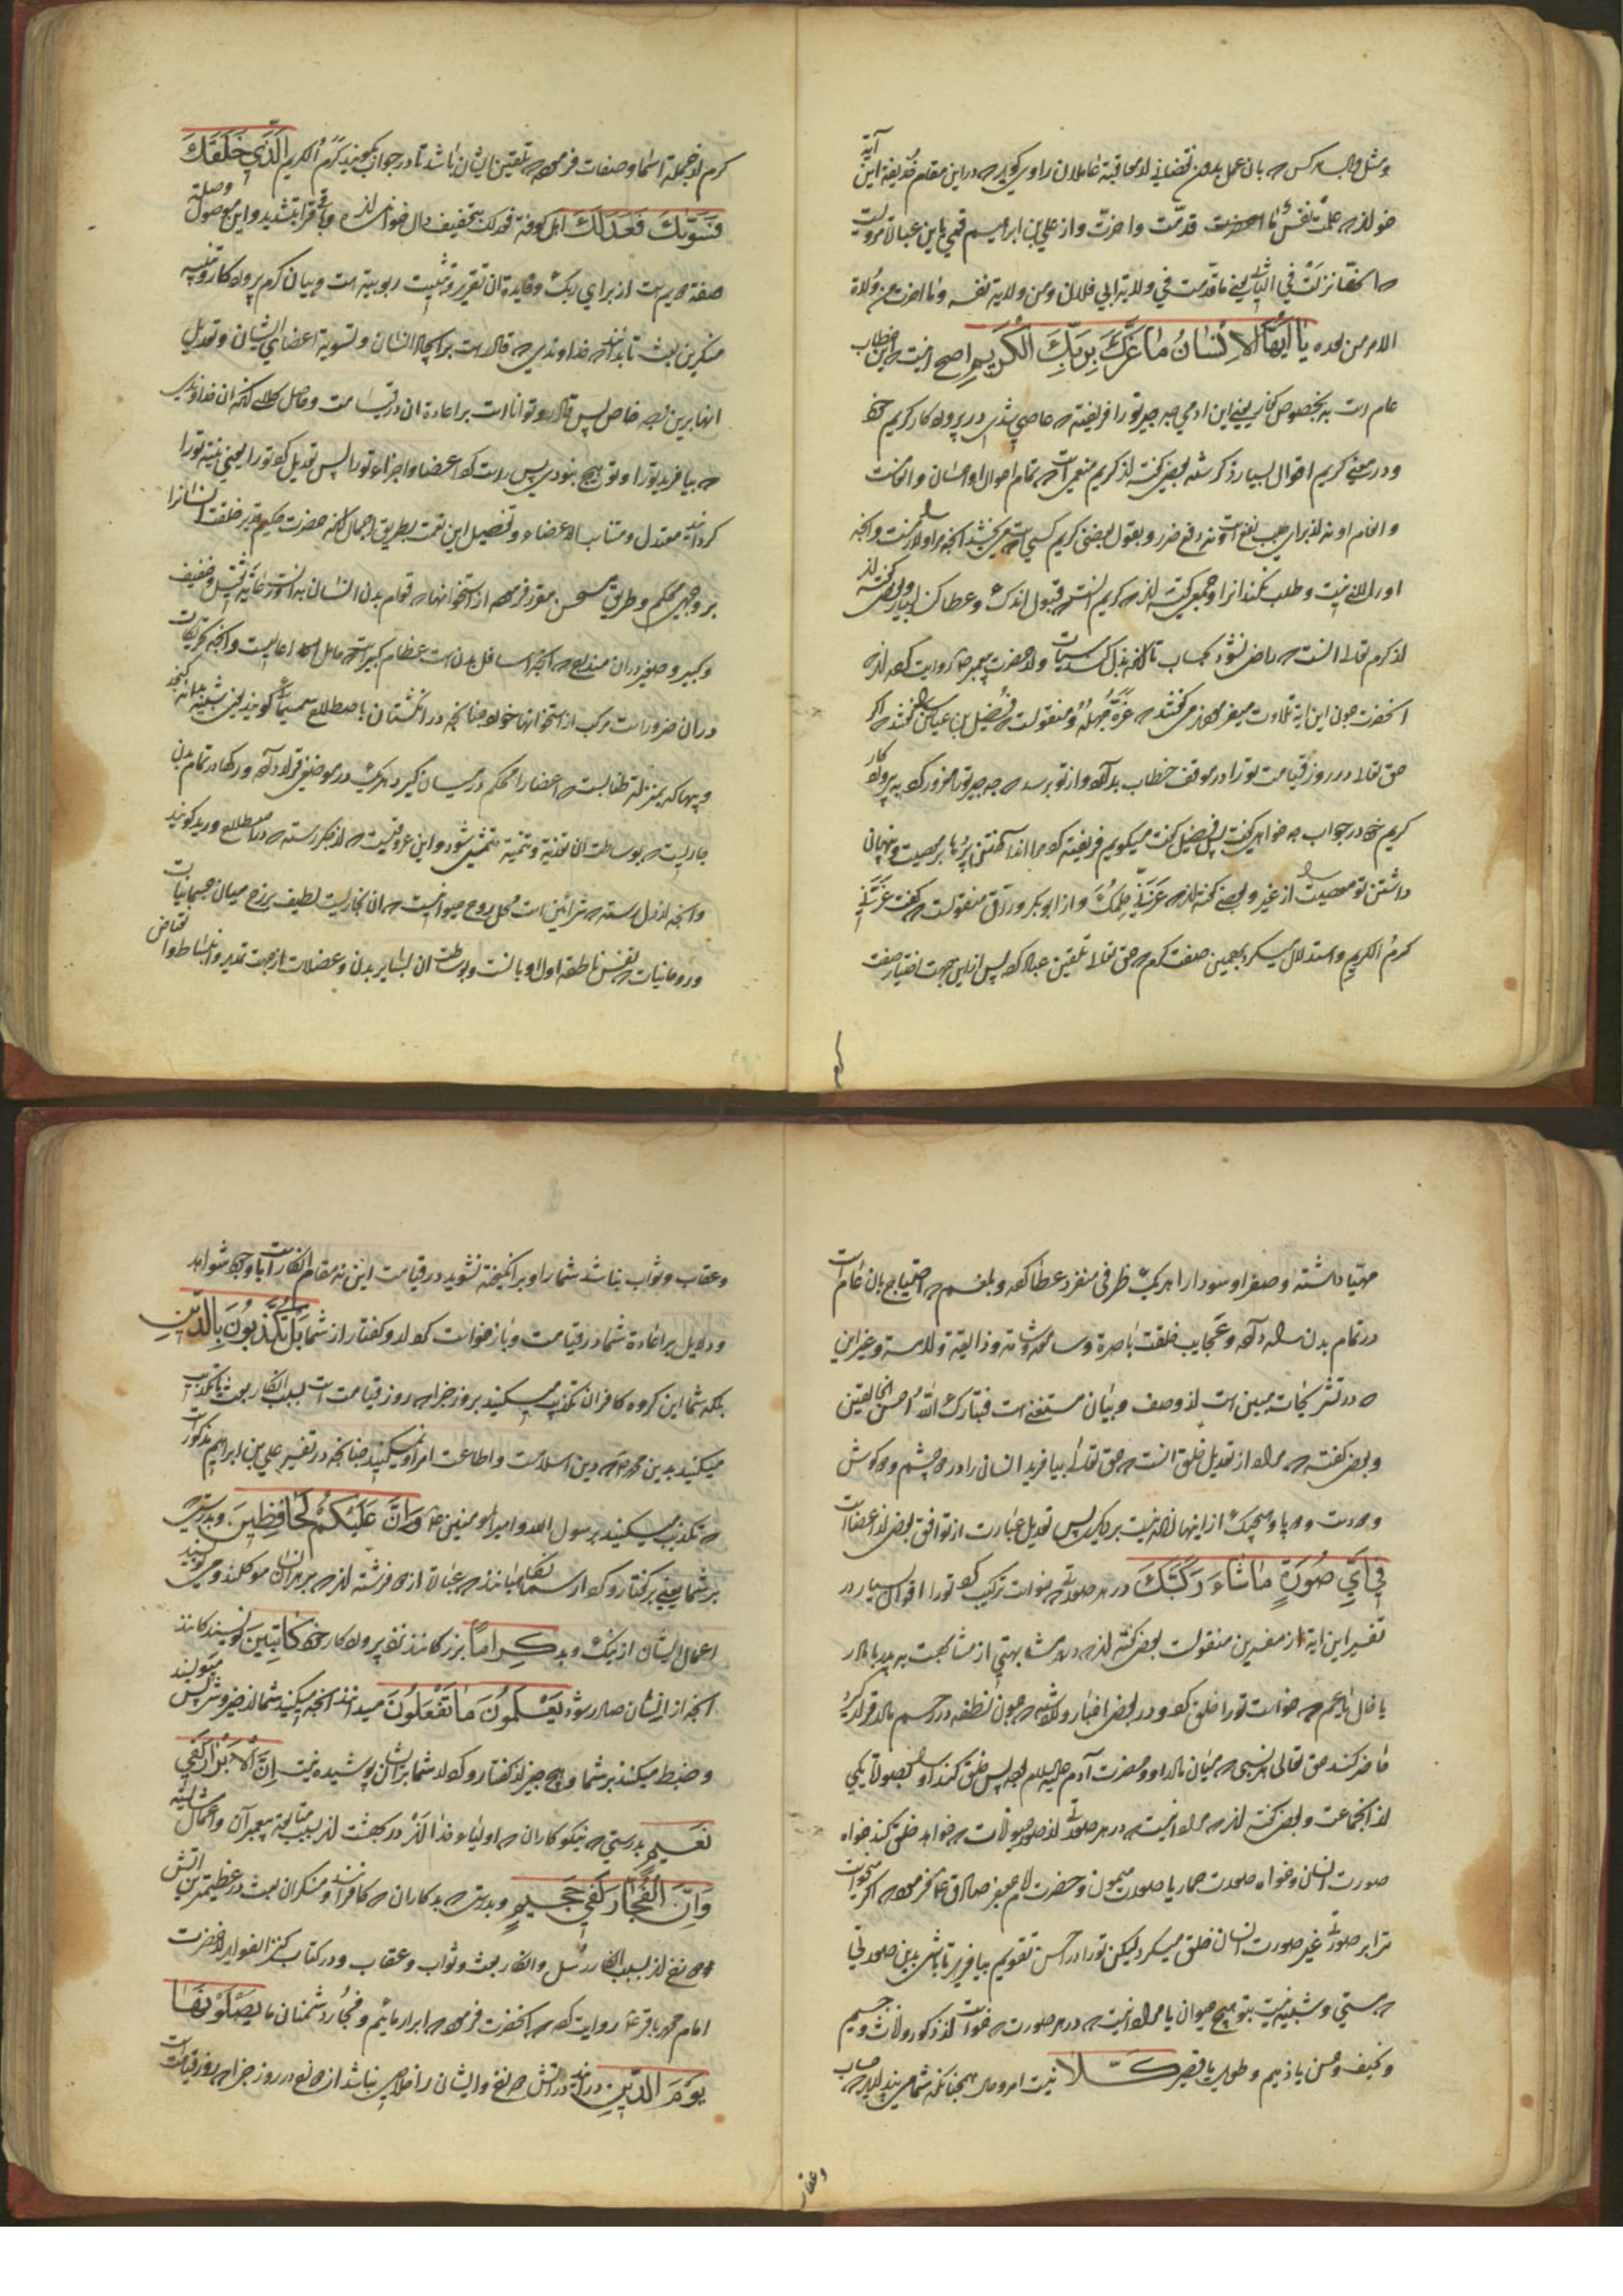 و مثل وبال هر کس که بان عمل بدون نقصانی از معاقبهٔ عاملان راوی گوید که در این مقام حذیفه این آیه
خواند که علمت نفس ما قدمت و اخرت و از علی بن ابراهیم قمی باین عبارة مرویست
که انها نزلت فی الثانی یعنی ما قدمت فی ولایة ابی فلان و من ولایة نفسه و ما اخرت من ولاة
الامر من بعده يَا أَيُّهَا الْإِنْسَانُ مَا غَرَّكَ بِرَبِّكَ الْكَرِيمِ اصح اینست که این خطاب
عام است نه بخصوص کافر یعنی ای ادمی چه چیز تو را فریفته که عاصی شدی در پروردکار کریم خود
و در معنی کریم اقوال بسیار ذکر شده بعضی گفته اند کریم منعمی است که تمام احوال او احسان و انعامست
و انعام او نه از برای جلب نفع است و نه دفع ضرر و بقول بعضی کریم کسی است که می بخشد انچه بر او لازمست و انچه
او را لازم نیست و طلب نکند انرا و جمعی گفته اند که کریم انست که قبول اندک و عطا کند بسیار و بعضی گفته اند
از کرم تعالی انست که راضی نشود بحساب تا انکه بدل کند سیئات و از حضرت پیغمبر ص روایت کرده اند که
انحضرت چون این ایه تلاوت میفرمودند می گفتند که غره جهله و منقولست که فضیل بن عیاض را گفتند که اگر
حق تعالی در روز قیامت تو را در موقف خطاب بدارد و از تو پرسد که چه چیز تو را مغرور کرد به پروردکار
کریم خود در جواب چه خواهی گفت پس فضیل گفت میگویم فریفته کرد مرا انداختن پرده بر معصیت و پنهان
داشتن تو معصیت را از غیر و بعضی گفته اند که غرنی حلمک و از ابوبکر وراق منقولست که گفت غرنی
کرم الکریم و استدلال میکرد بهمین صفت کرم که حق تعالی تلقین عباد کرد پس از این جهت اختیار صفت
کرم از جمله اسما و صفات فرموده که تلقین ایشان باشد تا در جواب گویند کرم الکریم الَّذِي خَلَقَكَ
فَسَوَّاكَ فَعَدَلَكَ اهل کوفه فعدلک بتخفیف دال خوانده اند و باقی قرا بتشدید و این موصول وصله
صفة ثانیه است از برای ربک و فایدة ان تقریر و تثبیت ربوبیة است و بیان کرم پروردکار و تنبیه
منکرین بعث تا بدانند که خداوندی که قادر است بر ایجاد انسان و تسویه اعضای ایشان و تعدیل
انها برین وجه خاص پس قادر و توانا است بر اعادة ان در قیامت و حاصل کلام انکه ان خداوندی
که بیافرید تو را و تو هیچ نبودی پس راست کرد اعضا و اجزاء تو را پس تعدیل کرد تو را یعنی بنیه تو را
کردانید معتدل و متناسب الاعضاء و تفصیل این نعمت بطریق اجمال انکه حضرت حکیم قدیر خلقت انسانرا
بر وجهی محکم و طریق مستحسن مقرر فرموده از استخوانها که قوام بدن انسان به انست و خفیف
و کبیر و صغیر در ان مندرج که انچه اسافل بدن است عظام کبیر است که حامل اعالیست و انچه تحریکات
در ان ضرور است مرکب از استخوانها خورد چنانچه در انکشتان باصطلاح سمسمیات گویند یعنی شبیه بدانه کنجد
و پیها که بمنزله طنابست که اعضا را محکم در میان گیرد هر یک در موضعی قرار داده و رکها در تمام بدن
جاریست که بوساطت ان تغذیه و تنمیه متمشی شود و این عروقیست که از جگر رسته که در اصطلاح ورید گویند
و انچه از دل رسته که شرائین است محل روح حیوانیست که ان بخاریست لطیف برزخ میان جسمانیات
و روحانیات که نفس ناطقه اول او بانست و بوساطت ان بسایر بدن و عضلات از جهت تمدید و انبساط و انقباض
مهیا داشته و صفرا و سودا را هر یک ظرفی منفرد عطا کرده و بلغم که احتیاج بان عام است
در تمام بدن ساری داده و عجایب خلقت باصرة و سامعه و شامه و ذایقه و لامسه و غیر این
که در تشریحات مبین است از وصف و بیان مستغنی است فتبارک الله احسن الخالقین
و بعضی گفته که مراد از تعدیل خلق انست که حق تعالی بیافرید انسانی را دو چشم و دو گوش
و دو دست و دو پا و هیچیک از اینها زاید نیست بر دیگری پس تعدیل عبارت از توافق بعضی از اعضا است
فِي أَيِّ صُورَةٍ مَا شَاءَ رَكَّبَكَ در هر صورتی که خواست ترکیب کرد تو را اقوال بسیار در
تفسیر این ایه از مفسرین منقولست بعضی گفته اند که در هر شباهتی از مشابهت به پدر یا مادر
یا خال یا عم که خواست تورا خلق کرد و در بعضی اخبار وارد شده که چون نطفه در رحم مادر قرار گیرد
حاضر کند حق تعالی هر نسبی که میان مادر او و حضرت آدم علیه السلام بوده پس خلق کند او را بصورة یکی
از انجماعت و بعضی گفته اند که مراد اینست که در هر صورتی از صور حیوانات که خواهد خلق کند خواه
صورت انسان و خواه صورت حمار یا صورت میمون و حضرت امام جعفر صادق ع فرموده که اگر میخواست
ترا بر صورتی غیر صورت انسان خلق میکرد لیکن تورا در احسن تقویم بیافرید تا باشی بدین صورتی
که هستی و شبیه نیست بتو هیچ حیوان یا مراد اینست که در هر صورت که خواست از ذکور و اناث و جسیم
و نحیف و حسن یا ذمیم و طویل یا قصیر كَلَّا نیست امر و حال همچنانکه شما می پندارید که حساب
و عقاب و ثواب نباشد شما را و برانکیخته نشوید در قیامت این نه مقام انکار است با وجود شواهد
و دلایل بر اعادة شما در قیامت و باز خواست کردار و گفتار از شما بَلْ تُكَذِّبُونَ بِالدِّينِ
بلکه شما این کروه کافران تکذیب میکنید بروز جزا که روز قیامت است بسبب انکار بعث یا تکذیب
میکنید بدین محمد ص که دین اسلامست و اطاعت امر او نمیکنید چنانچه در تفسیر علی بن ابراهیم مذکور است
که تکذیب میکنید برسول الله و امیر المومنین ع وَإِنَّ عَلَيْكُمْ لَحَافِظِينَ و بدرستی که
بر شما یعنی بر گفتار و کردار شما نکاهبانند که عبارة از دو فرشته اند که بر هر انسان موکلند و می نویسند
اعمال ایشان از نیک و بد كِرَامًا بزرکانند نزد پروردکار خود كَاتِبِينَ نویسند کانند
انچه از ایشان صادر شود يَعْلَمُونَ مَا تَفْعَلُونَ میدانند انچه میکنید شما از خیر و شر پس مینویسند
و ضبط میکنند بر شما و هیچ چیز از گفتار و کردار شما بر ایشان پوشیده نیست إِنَّ الْأَبْرَارَ لَفِي
نَعِيمٍ بدرستی که نیکو کاران که اولیاء خدا اند در بهشت اند بسبب متابعة پیغمبران و اعمال شایسته
وَإِنَّ الْفُجَّارَ لَفِي جَحِيمٍ و بدرستی که بدکاران که کافرانند و منکران بعث در عظیمترین اتش
دوزخ اند بسبب انکار رسل و انکار بعث و ثواب و عقاب و در کتاب کنز الفواید از حضرت
امام محمد باقر ع روایت کرده که انحضرت فرموده که ابرار مائیم و فجار دشمنان ما يَصْلَوْنَهَا
يَوْمَ الدِّينِ در ایند در اتش دوزخ و ایشان را خلاصی نباشد از دوزخ در روز جزا که روز قیامت است
و عقاب